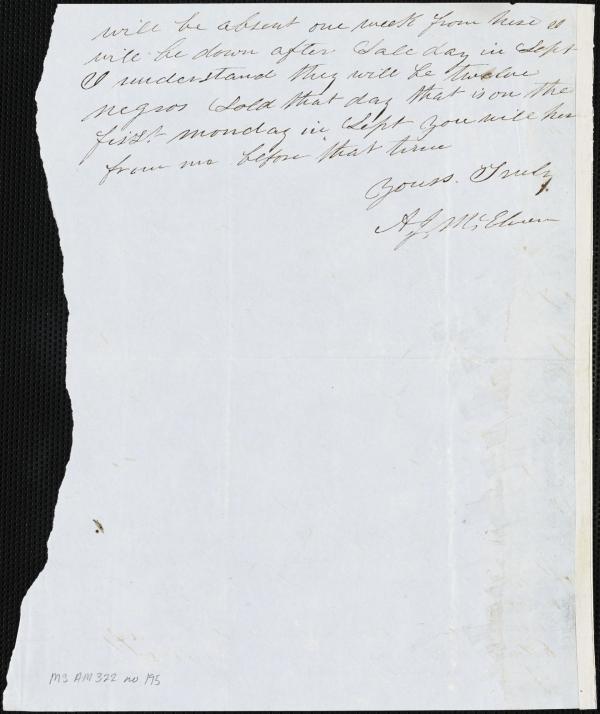 will be absent one week from here I
will be down after Sale day in Sept
I understand they will be twelve
negros Sold that day that is on the
first monday in Sept you will hear
from me before that time
Yours. Truly
A J McElveen
MS AM 322 no 195